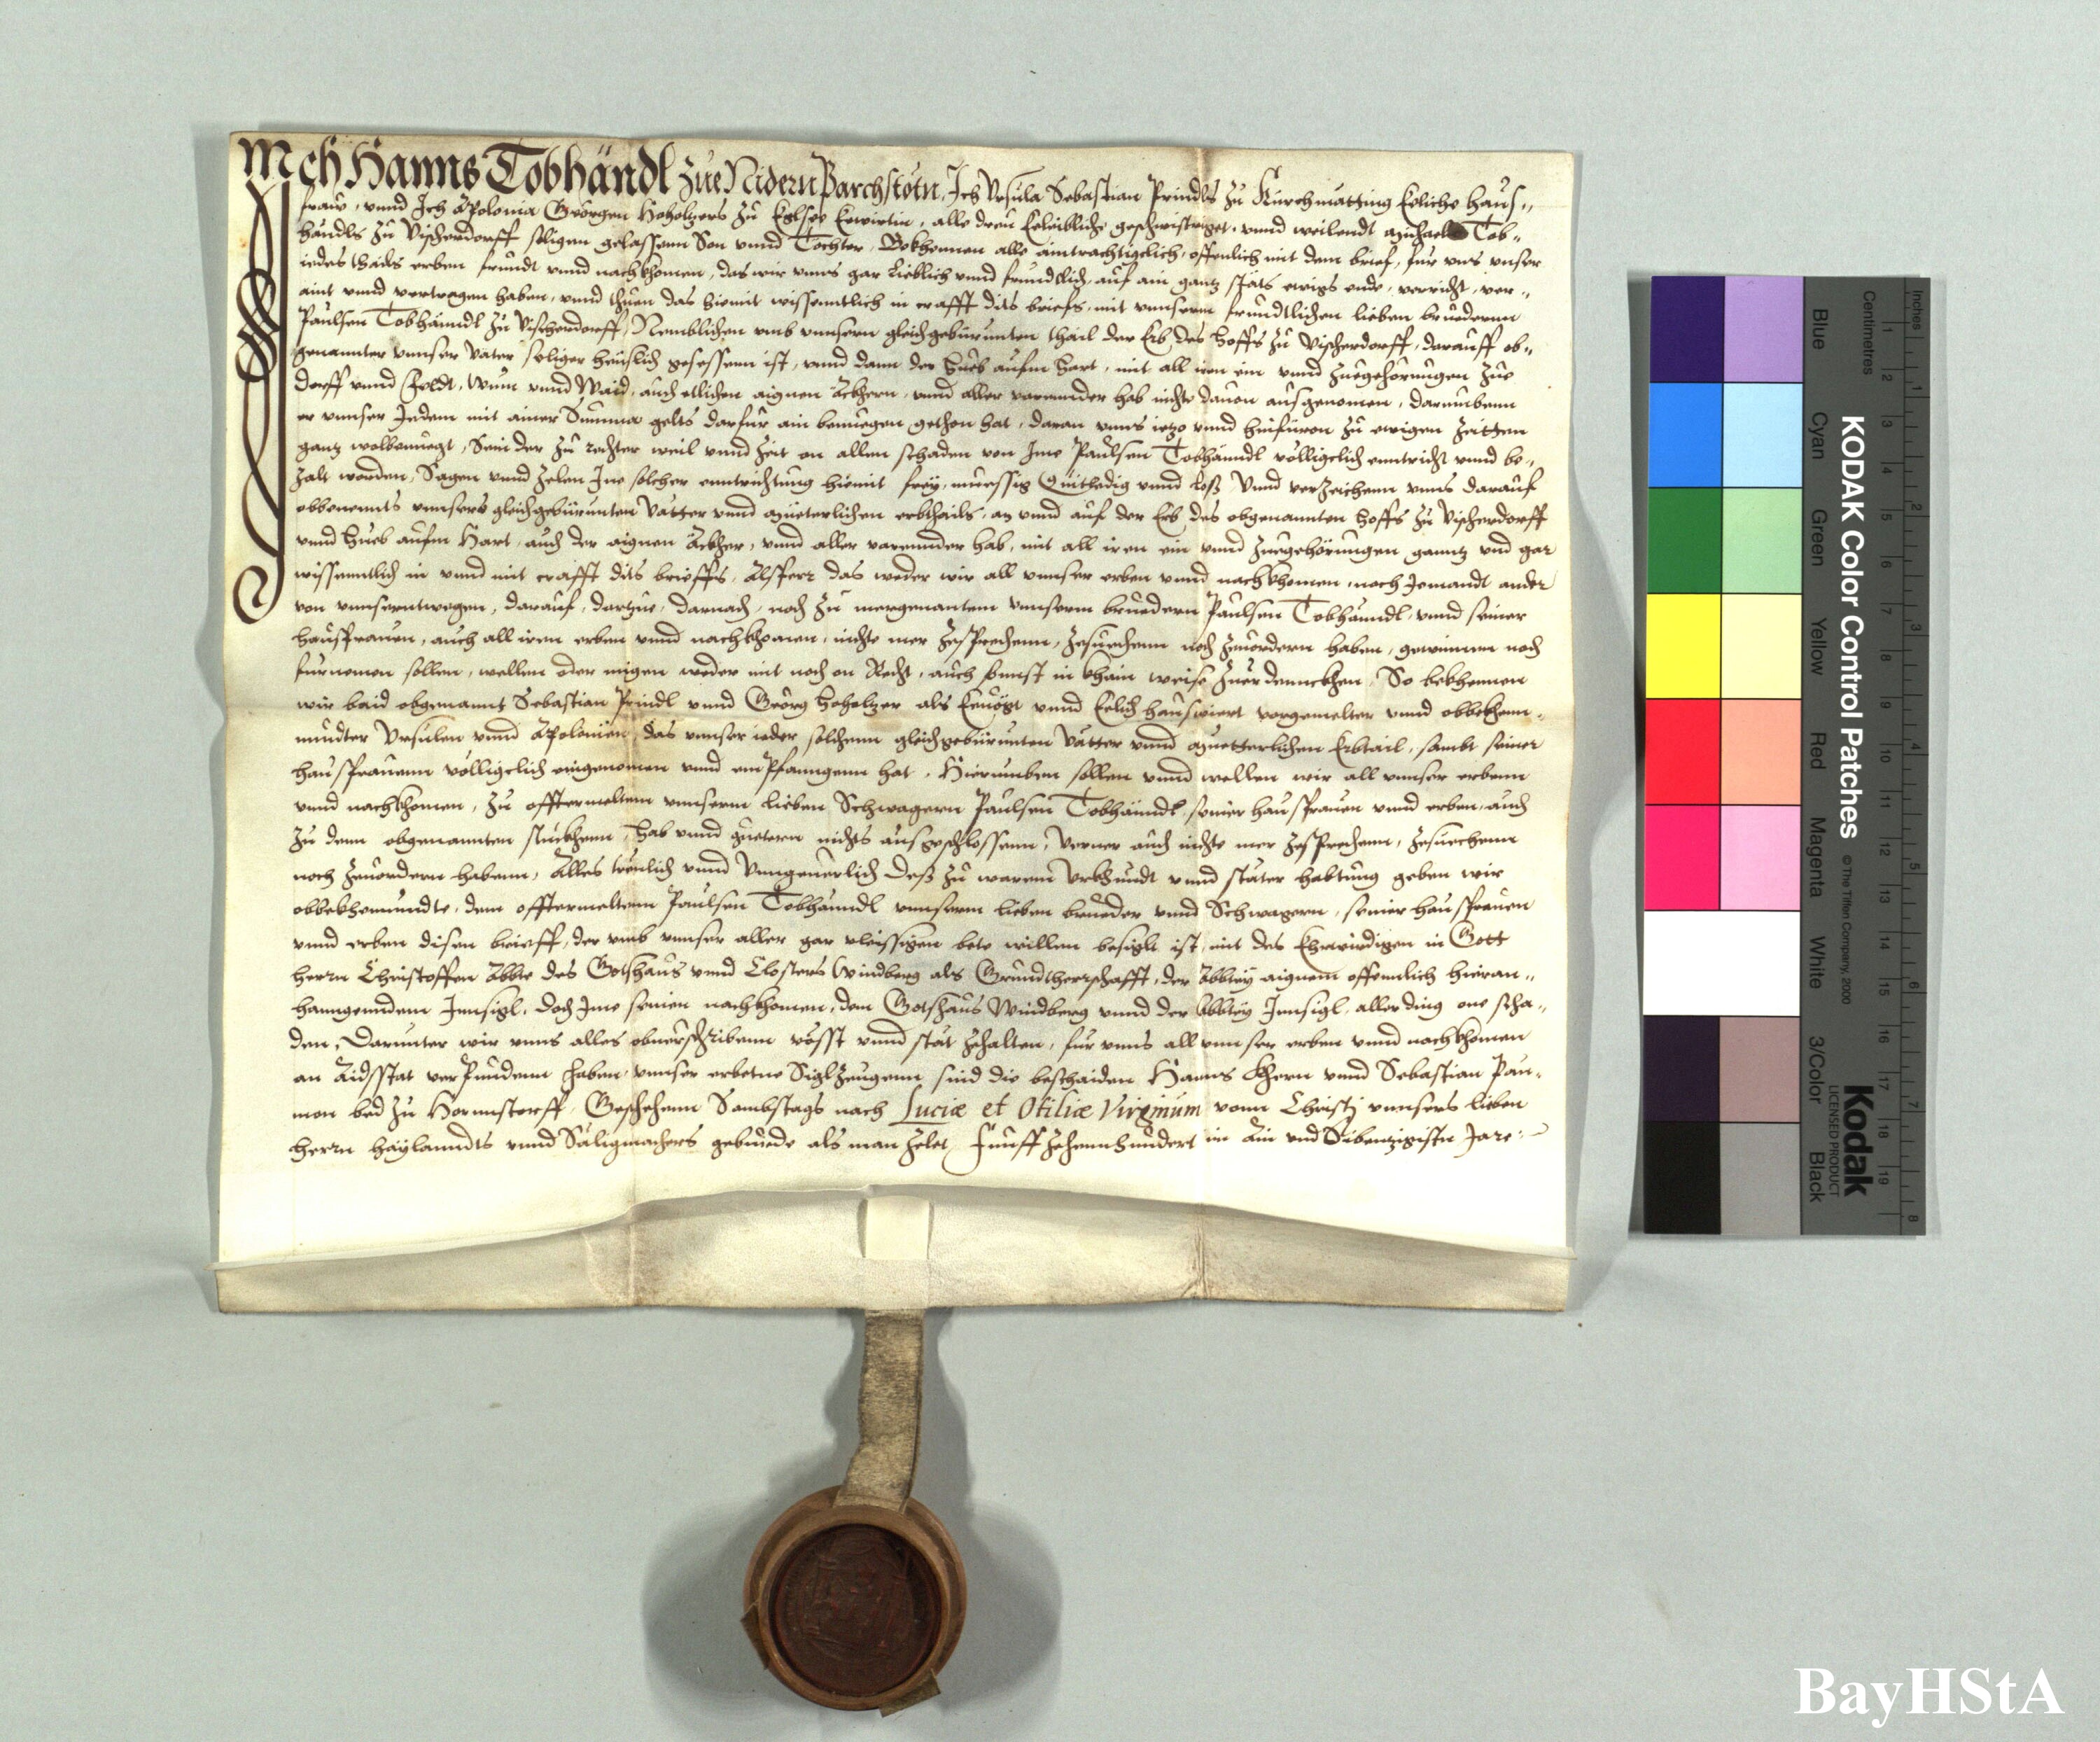 Ich Hanns Tobhändl zue Nidern Parchstötn, Ich Ursula Sebastian Prindls zu Kirchmatting Eeliche haus„
fraw, vnnd Ich Apolonia Geörgen Hoholtzers zu Eglsee Eewirtin, alle dreu Eeleibliche geschwistriget, vnnd weilendt Michaeln Tob„
händls zu Vischerdorff seligen gelassenn Son vnnd Töchter, Bekhennen alle aintrachtigclich, offenlich mit dem brief, für vns vnser
iedes thails erben freundt vnnd nachkhomen, das wir vnns gar lieblich vnnd freundtlich, auf ain gantz stäts ewigs ende, verricht, ver„
aint vnnd vertragen haben, vnnd thuen das hiemit wissenntlich in crafft dits briefs, mit vnnserm freundtlichen lieben bruedernn
Paulsen Tobhänndl zu Vischerdorff, Nemblichen vmb vnnsern gleichgebürunten thail der Erb des Hoffs zu Vischerdorff, darauff ob„
genannter vnnser Vater seliger heuslich gesessenn ist, vnnd dann der Hueb aufm Hart, mit all iren ein vnnd zuegehörungen zue
dorff vnnd Veldt, Wun vnnd Waid, auch etlichen aignen Äckhern, vnnd aller varennder hab nichts dauon ausgenomen, darumbenn
er vnnser Jedem mit ainer Summa gelts darfür ain benuegen gethon hat, daran vnns ietzo vnnd hinfüron zu ewigen Zeitten
gantz wolbenuegt, Sein der zu rechter weil vnnd Zeit on allen schaden von Ime Paulsen Tobhänndl völligclich enntricht vnnd be„
zalt worden, Sagen vnnd zelen Ine solcher enntrichtung hiemit frey, müessig Quitledig vnnd loß, Vnnd verzeichenn vnns darauf
obbenents vnnsers gleichgebürunten Vätter vnnd Mueterlichen erbthails, an vnnd auf der Erb des obgenannten Hoffs zu Vischerdorff
vnnd Hueb aufm Hart, auch der aignen Äckher, vnnd aller varennder hab, mit all iren ein vnnd zuegehörungen ganntz vnd gar
wissenntlich in vnnd mit crafft dits brieffs, Alsferr das weder wir all vnnser erben vnnd nachkhomen, noch Jemandt ander
von vnnserntwegen, darauf, dartzue, darnach, noch zu mergenantem vnnserm bruedern Paulsen Tobhänndl, vnnd seiner
hausfrauen, auch all iren erben vnnd nachkhomen, nichts mer zesprechenn, zesuechenn noch zeuordern haben, gewinnen noch
fürnemen sollen, wellen oder mügen weder mit noch on Recht, auch sunst in khain weise zuerdennckhen, So bekhennen
wir baid obgenannt Sebastian Prindl vnnd Geörg Hoholtzer als Eeuögt vnnd Eelich hauswiert vorgemelter vnnd obbekhenn„
nundter Ursulen vnnd Apolonien, das vnnser ieder solchenn gleichgebürunten Vätter vnnd Muetterlichen Erbtail, sambt seiner
hausfrauenn völligclich eingenomen vnnd empfanngenn hat, Hierumben sollen vnnd wellen wir all vnnser erbenn
vnnd nachkhomen, zu offtermeltem vnnserm lieben Schwagern Paulsen Tobhänndl, seiner hausfrauen vnnd erben, auch
zu denn obgenannten stuckhenn, hab vnnd güetern nichts ausgeschlossenn, verner auch nichts mer zesprechenn, zesuechenn
noch zeuordern habenn, Alles treulich vnnd Vnngeuerlich Deß zu warem Vrkhundt vnnd stäter haltung geben wir
obbekhennundte, dem offtermeltenn Paulsen Tobhänndl vnnserm lieben brueder vnnd Schwagern, seiner hausfrauen
vnnd erben disen brieff, der vmb vnnser aller gar vleissigen bete willen besiglt ist, mit des Ehrwirdigen in Gott
herrn Christoffen Abbte des Gotshaus vnnd Closters Windberg als Grundtherrschafft, der Abbtey aignem offennlich hieran„
hanngenndem Innsigl, doch Ime seinen nachkhomen, dem Gotshaus Windberg vnnd der Abbtey Innsigl, allerding one scha„
den, Darunter wir vnns alles obuerschribenn vösst vnnd stät zehalten, für vnns all vnnser erben vnnd nachkhomen
an Aidsstat verpundenn haben, vnnser erbetne Siglzeugenn sind die beschaiden Hanns Khern vnnd Sebastian Pau„
men bed zu Hornnstorff, Geschehenn Sambstags nach Luciæ et Otiliæ Virginum vonn Christj vnnsers lieben
herrn haylanndts vnnd Säligmachers geburde als man zelet, Fünffzehennhundert im Ain vnd Sibentzigistn Jare
KODAK Color Control Patches
© The Tiffen Company, 2000
Kodak
LICENSED PRODUCT
Inches
1 2 3 4 5 6 7 8
Centimetres
1 2 3 4 5 6 7 8 9 10 11 12 13 14 15 16 17 18 19
Blue
Cyan
Green
Yellow
Red
Magenta
White
3/Color
Black
BayHStA